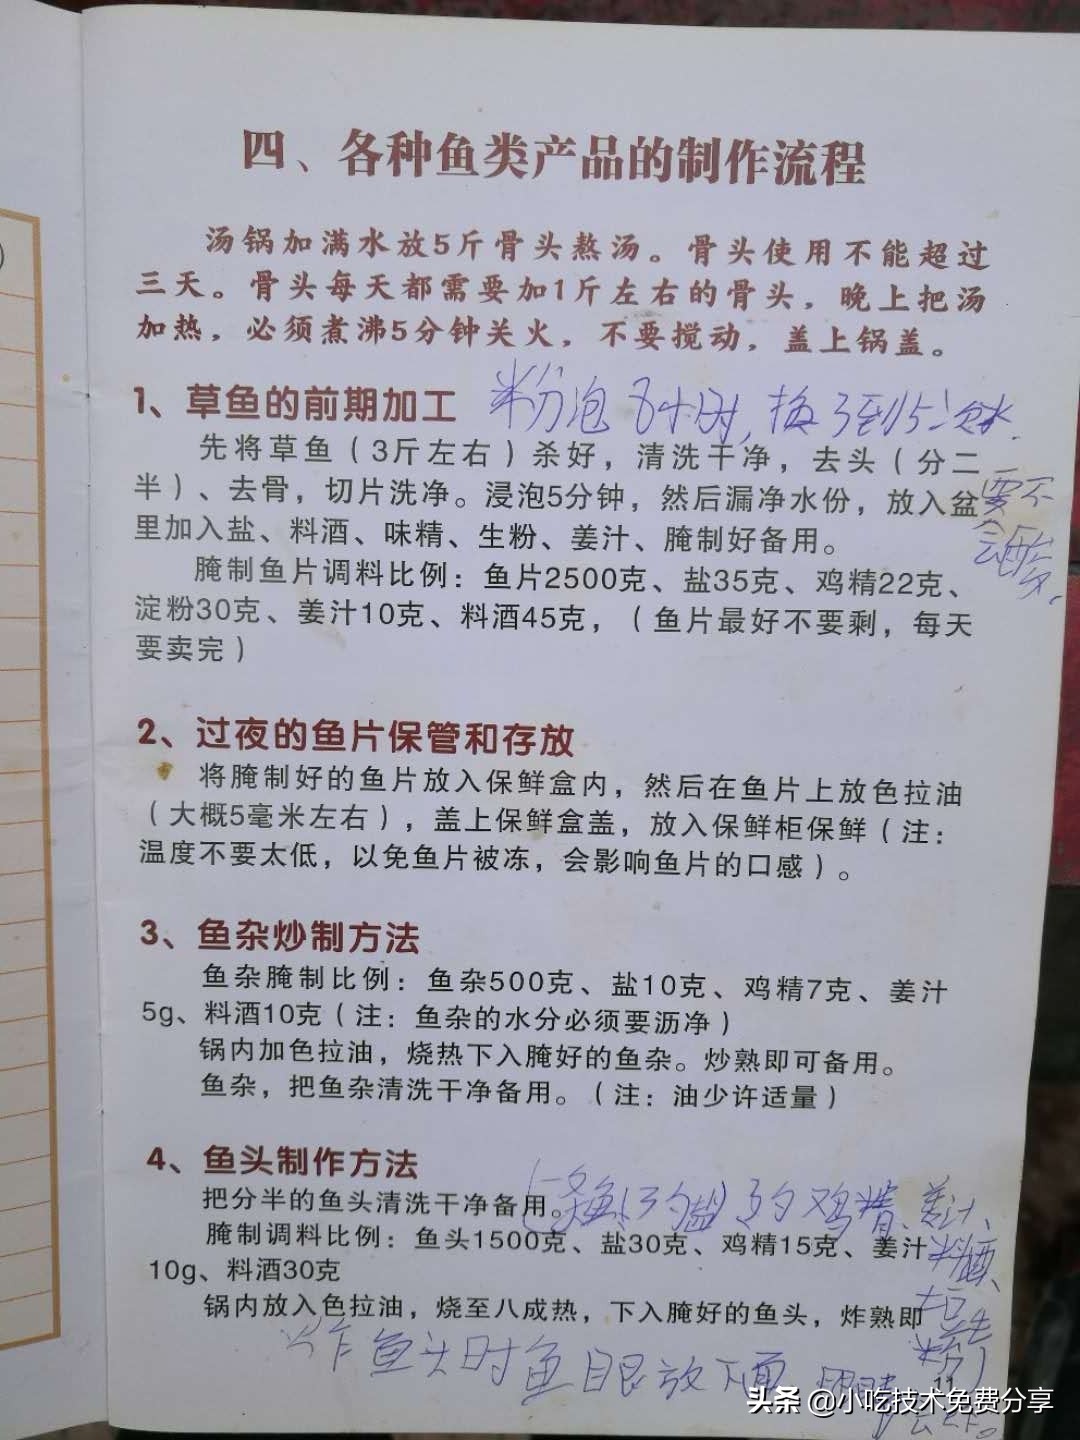 四、各种鱼类产品的制作流程
汤锅加满水放5斤骨头熬汤。骨头使用不能超过
三天。骨头每天都需要加1斤左右的骨头，晚上把汤
加热，必须煮沸5分钟关火，不要搅动，盖上锅盖。
1、草鱼的前期加工
粉泡8小时，换3到5次水.
要不
会酸
先将草鱼（3斤左右）杀好，清洗干净，去头（分二
半）、去骨，切片洗净。浸泡5分钟，然后漏净水份，放入盆
里加入盐、料酒、味精、生粉、姜汁、腌制好备用。
腌制鱼片调料比例：鱼片2500克、盐35克、鸡精22克、
淀粉30克、姜汁10克、料酒45克，（鱼片最好不要剩，每天
要卖完）
2、过夜的鱼片保管和存放
将腌制好的鱼片放入保鲜盒内，然后在鱼片上放色拉油
（大概5毫米左右），盖上保鲜盒盖，放入保鲜柜保鲜（注：
温度不要太低，以免鱼片被冻，会影响鱼片的口感）。
3、鱼杂炒制方法
鱼杂腌制比例：鱼杂500克、盐10克、鸡精7克、姜汁
5g、料酒10克（注：鱼杂的水分必须要沥净）
锅内加色拉油，烧热下入腌好的鱼杂。炒熟即可备用。
鱼杂，把鱼杂清洗干净备用。（注：油少许适量）
4、鱼头制作方法
把分半的鱼头清洗干净备用。
鸡精、姜汁、
料酒、
粉）
腌制调料比例：鱼头1500克、盐30克、鸡精15克、姜汁
10g、料酒30克
锅内放入色拉油，烧至八成热，下入腌好的鱼头，炸熟即
炸鱼头时鱼眼放下面
11
头条 @小吃技术免费分享